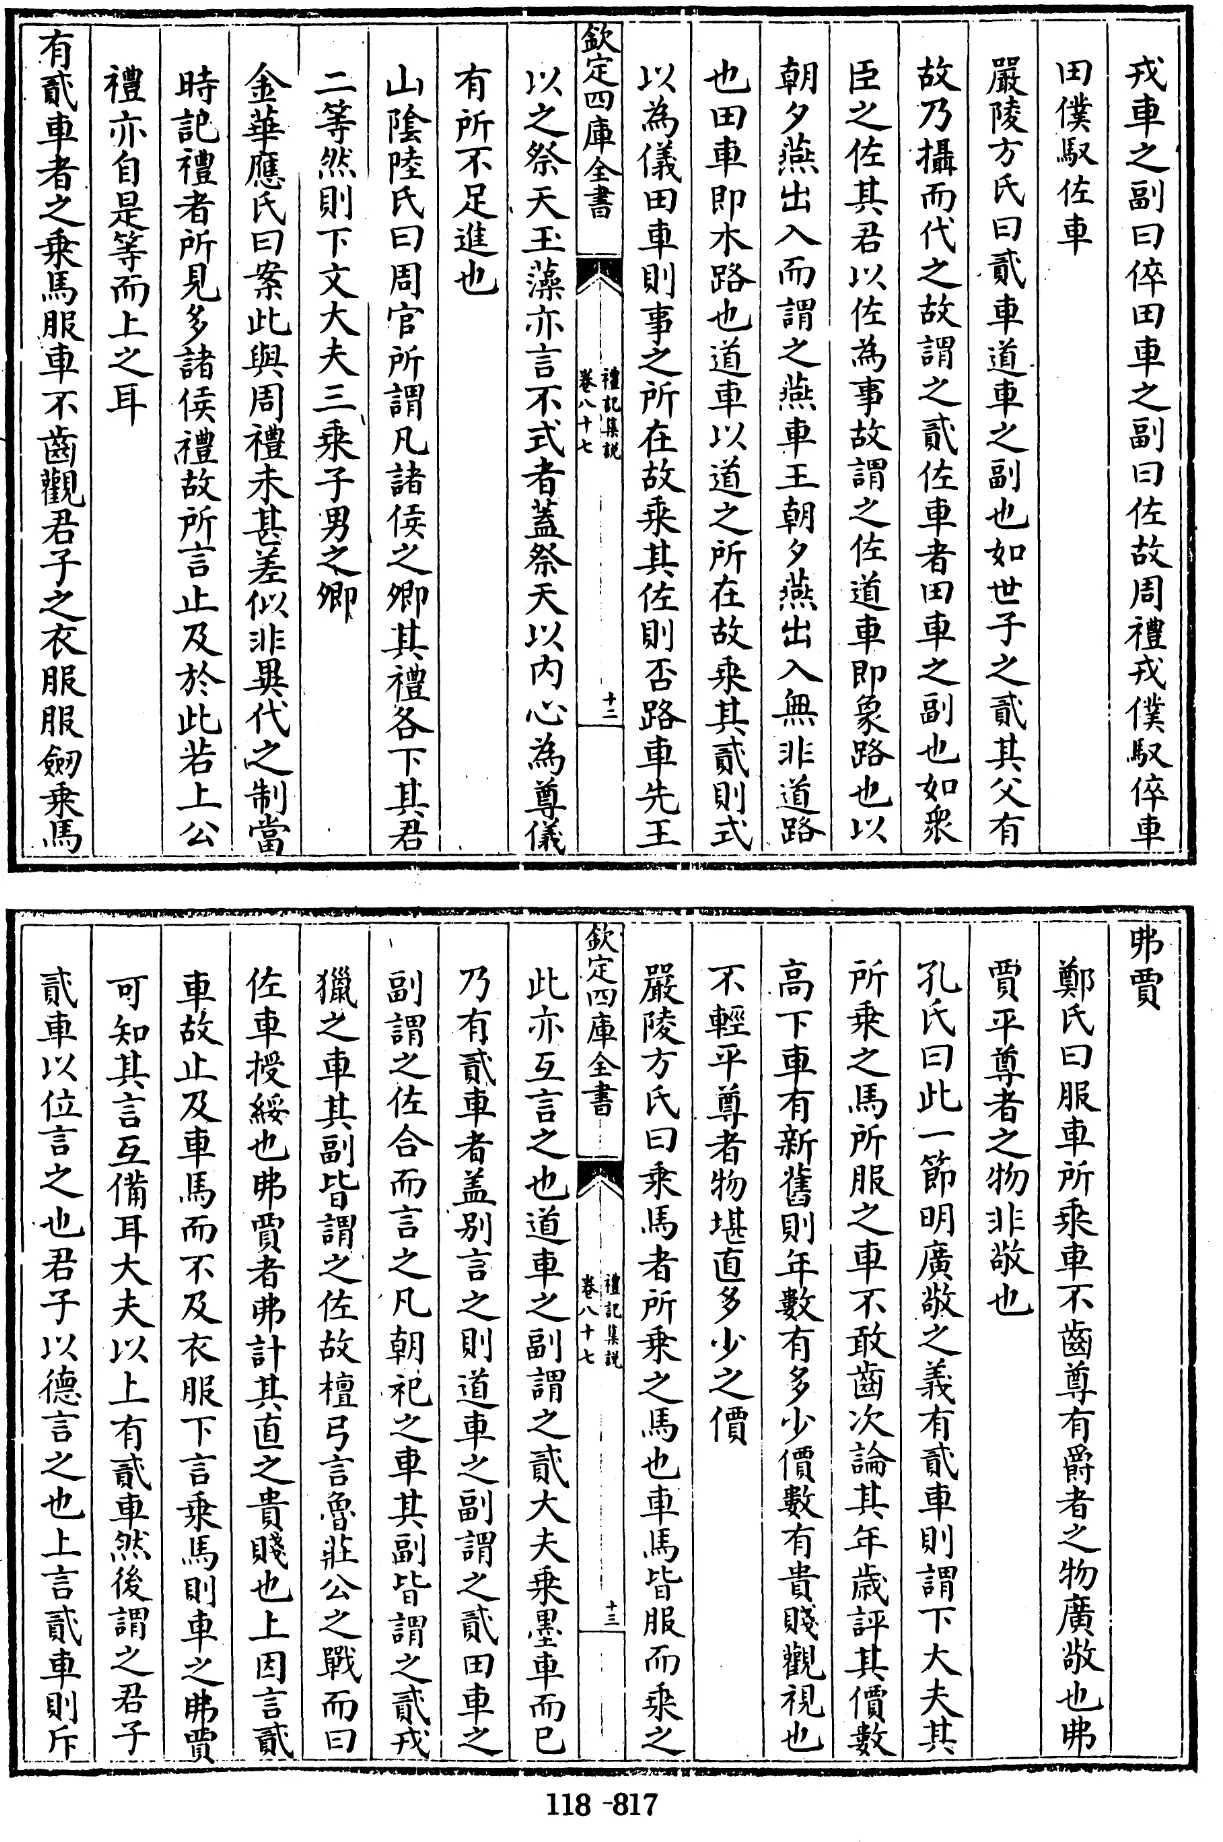 戎車之副曰倅田車之副曰佐故周禮戎僕馭倅車
田僕馭佐車
嚴陵方氏曰貳車道車之副也如世子之貳其父有
故乃攝而代之故謂之貳佐車者田車之副也如衆
臣之佐其君以佐為事故謂之佐道車即象路也以
朝夕燕出入而謂之燕車王朝夕燕出入無非道路
也田車即木路也道車以道之所在故乗其貳則式
以為儀田車則事之所在故乗其佐則否路車先王
欽定四庫全書
禮記集說
卷八十七
十二
以之祭天玉藻亦言不式者蓋祭天以内心為尊儀
有所不足進也
山陰陸氏曰周官所謂凡諸侯之卿其禮各下其君
二等然則下文大夫三乗子男之卿
金華應氏曰案此與周禮未甚差似非異代之制當
時記禮者所見多諸侯禮故所言止及於此若上公
禮亦自是等而上之耳
有貳車者之乗馬服車不齒觀君子之衣服服劒乗馬
弗賈
鄭氏曰服車所乗車不齒尊有爵者之物廣敬也弗
賈平尊者之物非敬也
孔氏曰此一節明廣敬之義有貳車則謂下大夫其
所乗之馬所服之車不敢齒次論其年歲評其價數
高下車有新舊則年數有多少價數有貴賤觀視也
不輕平尊者物堪直多少之價
嚴陵方氏曰乗馬者所乗之馬也車馬皆服而乗之
欽定四庫全書
禮記集說
卷八十七
十三
此亦互言之也道車之副謂之貳大夫乗墨車而已
乃有貳車者盖别言之則道車之副謂之貳田車之
副謂之佐合而言之凡朝祀之車其副皆謂之貳戎
獵之車其副皆謂之佐故檀弓言魯莊公之戰而曰
佐車授綏也弗賈者弗計其直之貴賤也上因言貳
車故止及車馬而不及衣服下言乗馬則車之弗賈
可知其言互備耳大夫以上有貳車然後謂之君子
貳車以位言之也君子以德言之也上言貳車則斥
118-817